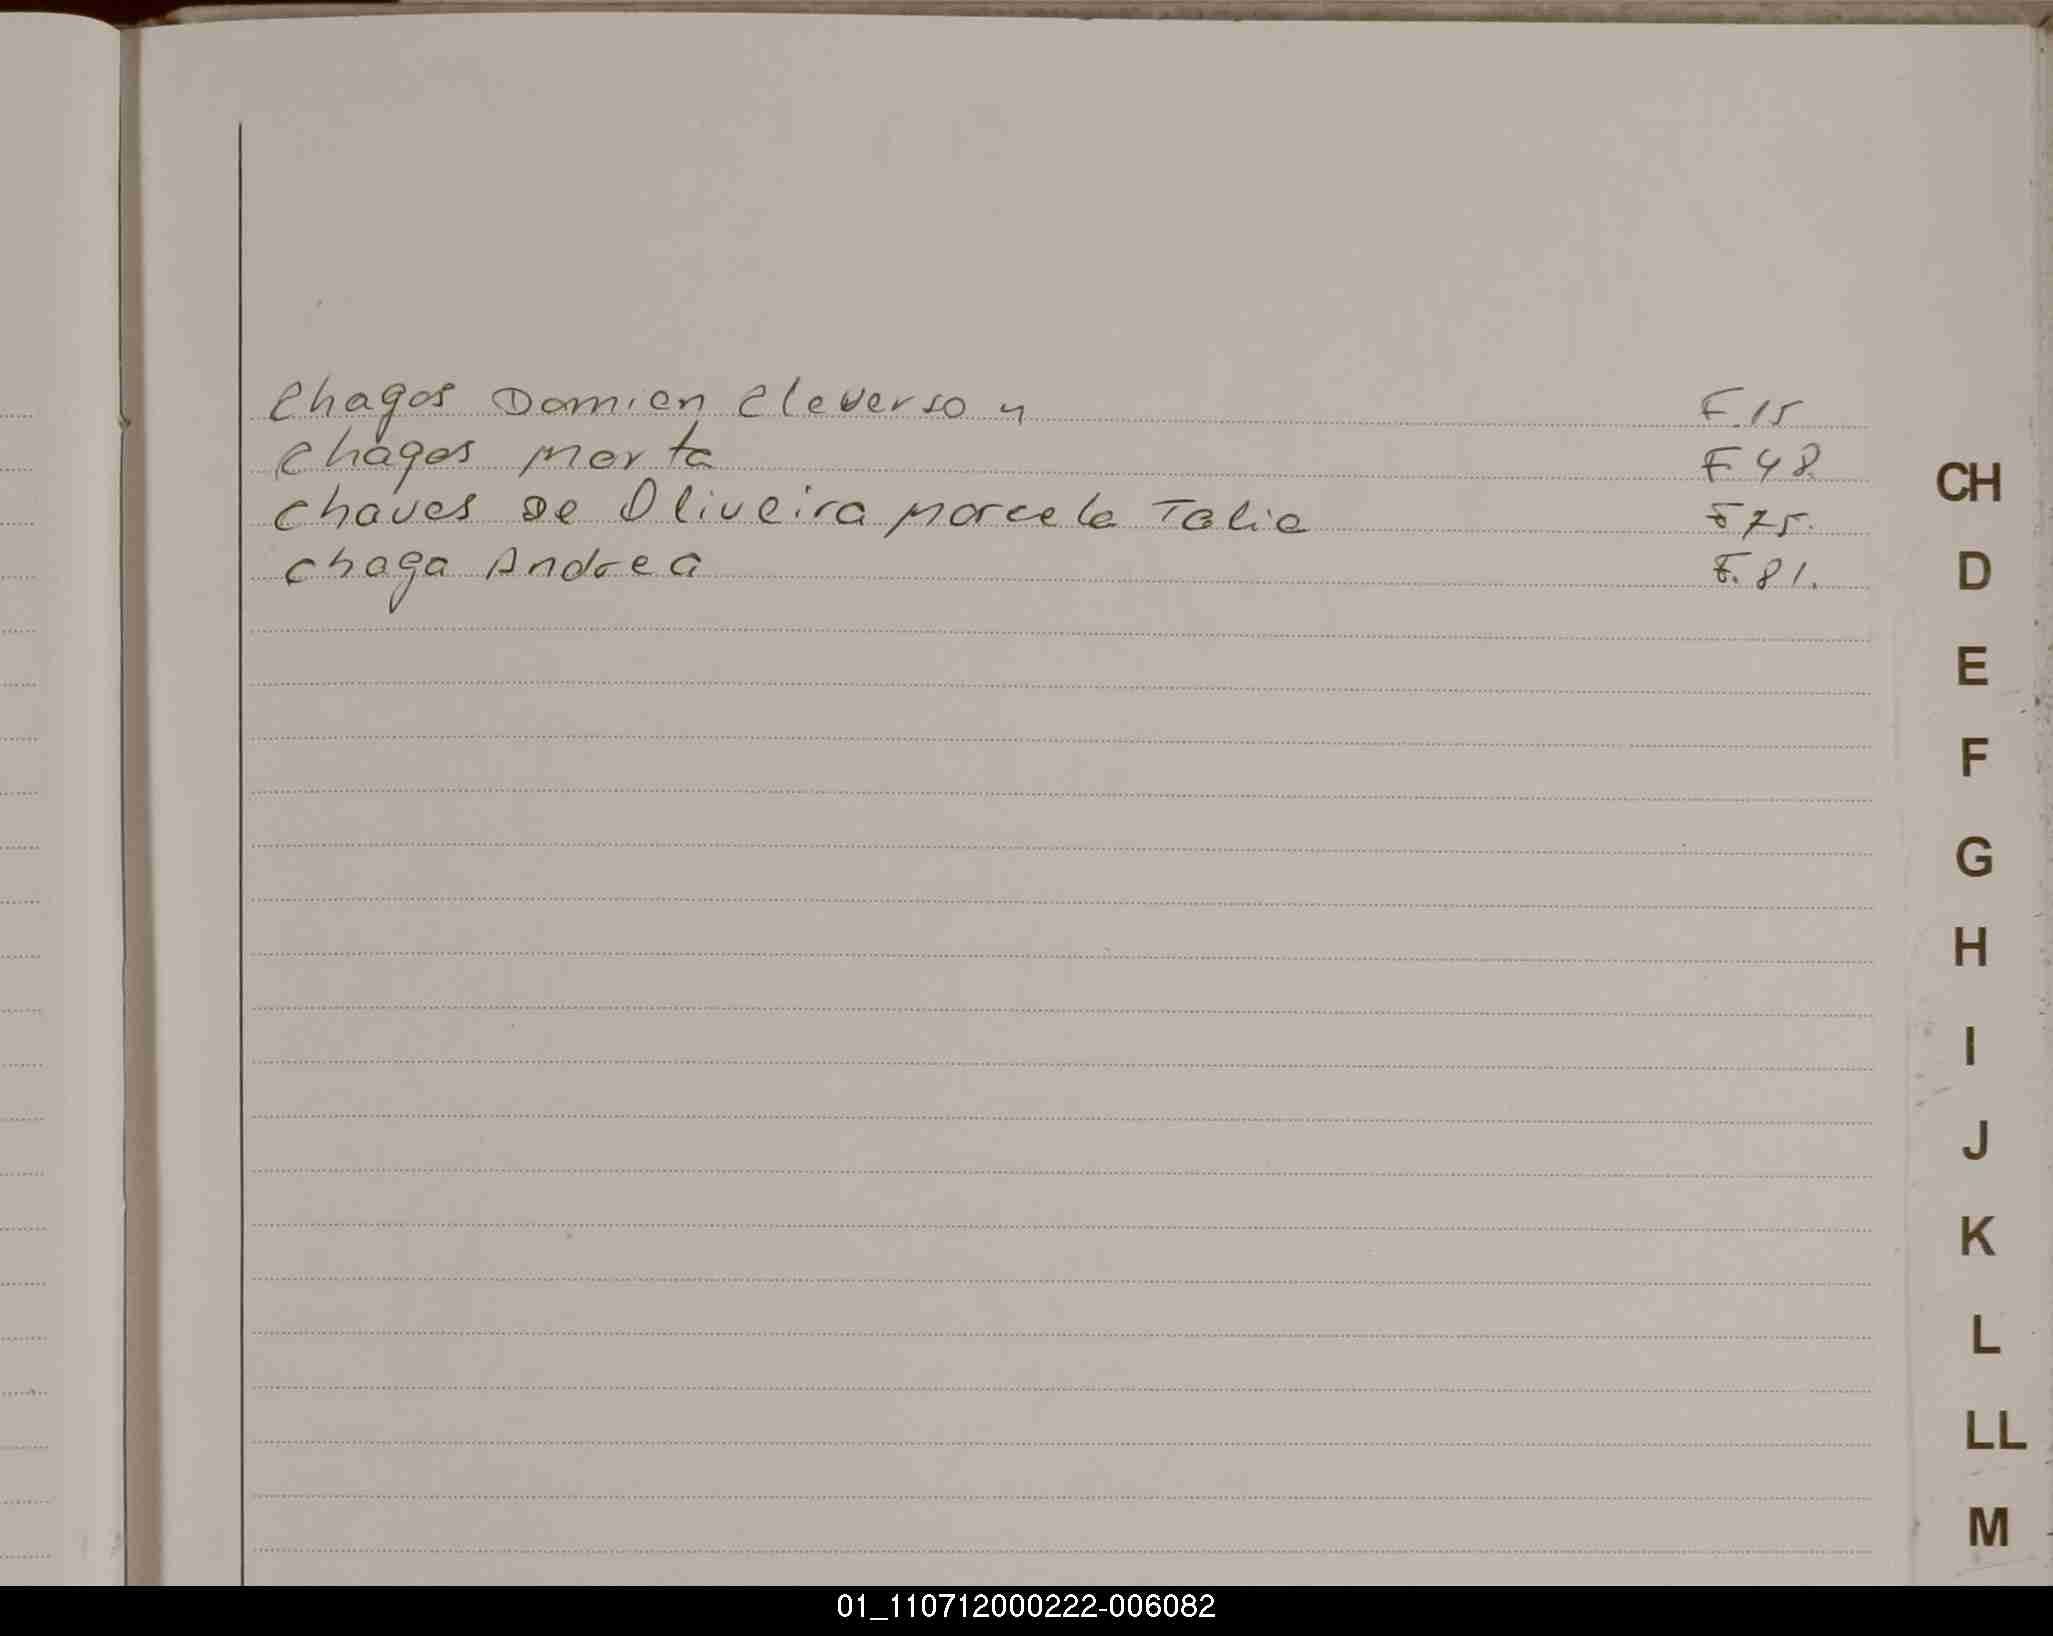 Chagas Damian Cleverson F.15
Chagas Marta F 48.
Chaves De Oliveira Marcela Talia F 75.
Chaga Andrea F. 81.
CH
D
E
F
G
H
I
J
K
L
LL
M
01_110712000222-006082